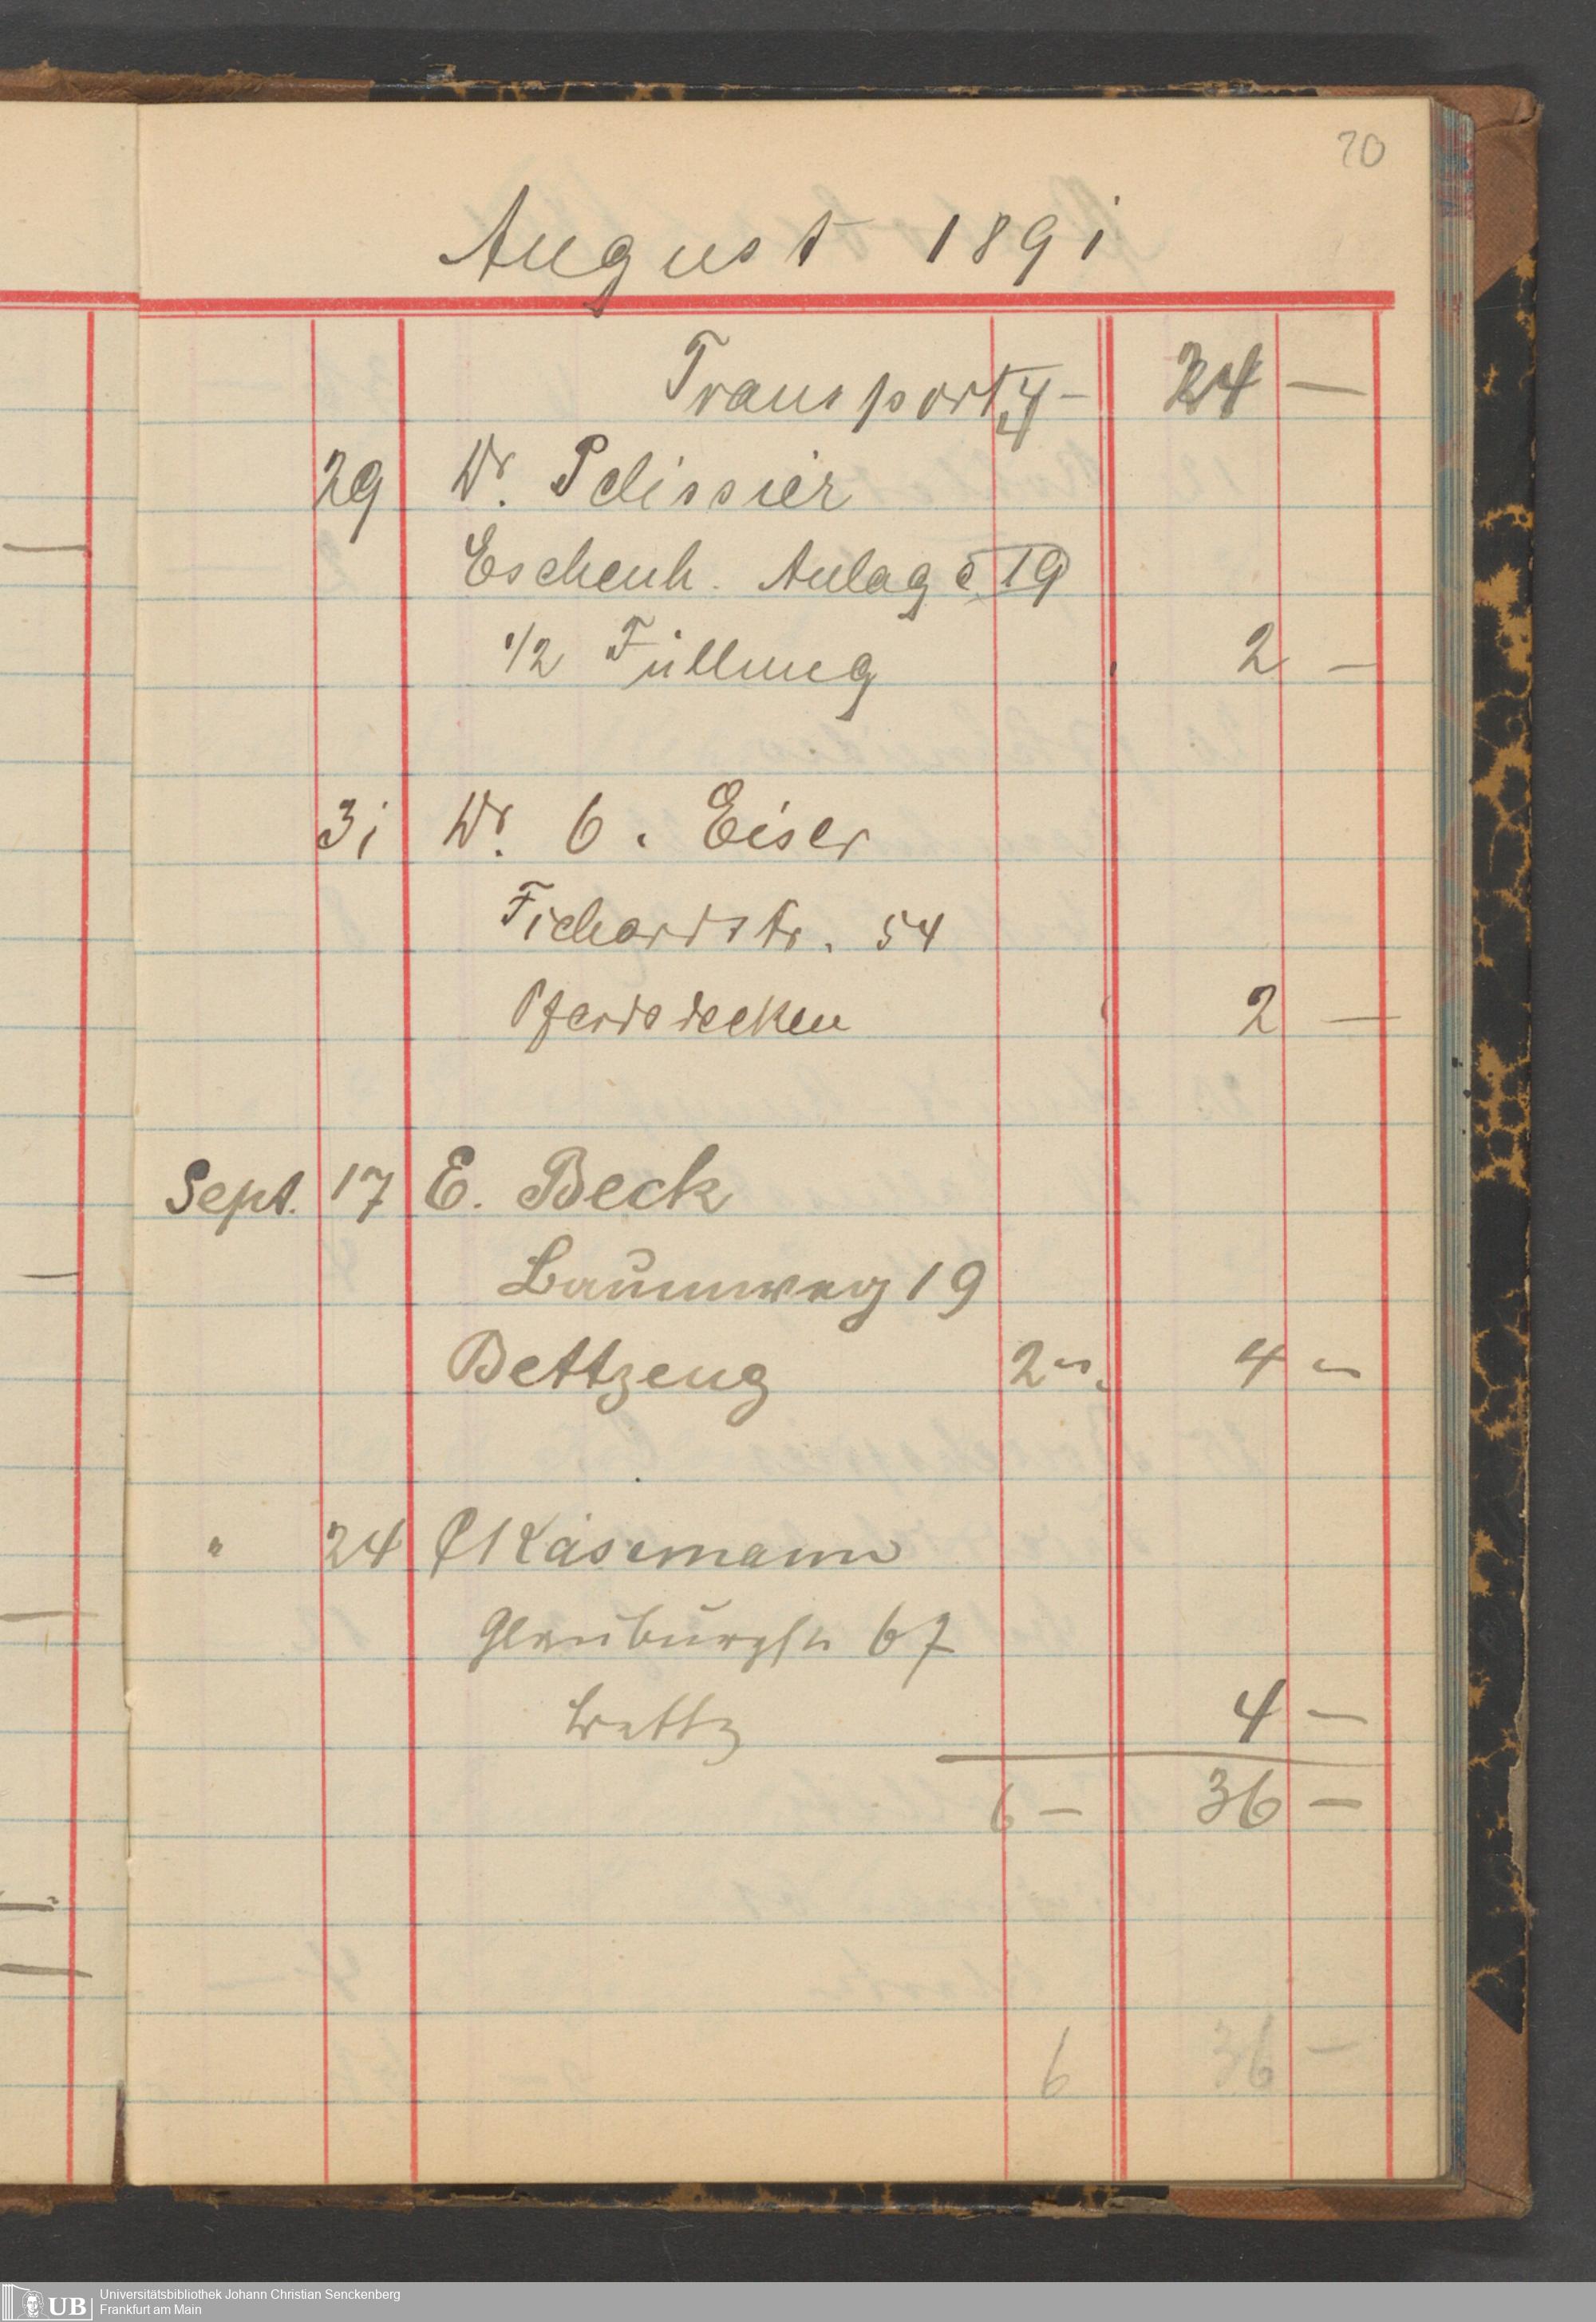 20
August 1891
Transport 4 - 24 —
29 Dr. Pelissier
Eschenh. Anlage 19
1/2 Füllung 2 —
31 Dr. O. Eiser
Fichardstr. 54
Pferdedecken 2 —
Sept. 17 E. Beck
Baumweg 19
Bettzeug 2 - 4 -
" 24 Käsemann
Glauburgstr 67
Bettz 4 —
6 — 36 —
6 36 —
UB Universitätsbibliothek Johann Christian Senckenberg
Frankfurt am Main